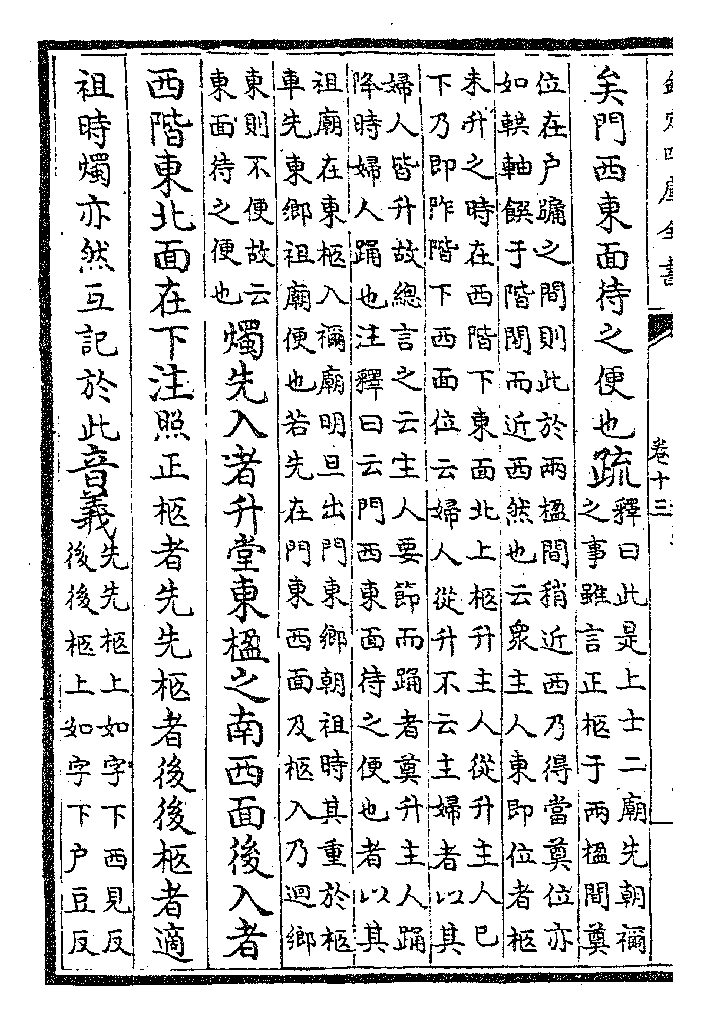 欽定四庫全書 卷十三
矣門西東面待之便也疏
釋曰此是上士二廟先朝禰
之事雖言正柩于兩楹間奠
位在户牖之間則此於兩楹間稍近西乃得當奠位亦
如輁軸饌于階閒而近西然也云衆主人東即位者柩
未升之時在西階下東面北上柩升主人從升主人已
下乃即阼階下西面位云婦人從升不云主婦者以其
婦人皆升故總言之云主人要節而踊者奠升主人踊
降時婦人踊也注釋曰云門西東面待之便也者以其
祖廟在東柩入禰廟明旦出門東鄉朝祖時其重於柩
車先東鄉祖廟便也若先在門東西面及柩入乃迴鄉
東則不便故云
東面待之便也
燭先入者升堂東楹之南西面後入者
西階東北面在下注照正柩者先先柩者後後柩者適
祖時燭亦然互記於此音義
先先柩上如字下西見反
後後柩上如字下户豆反